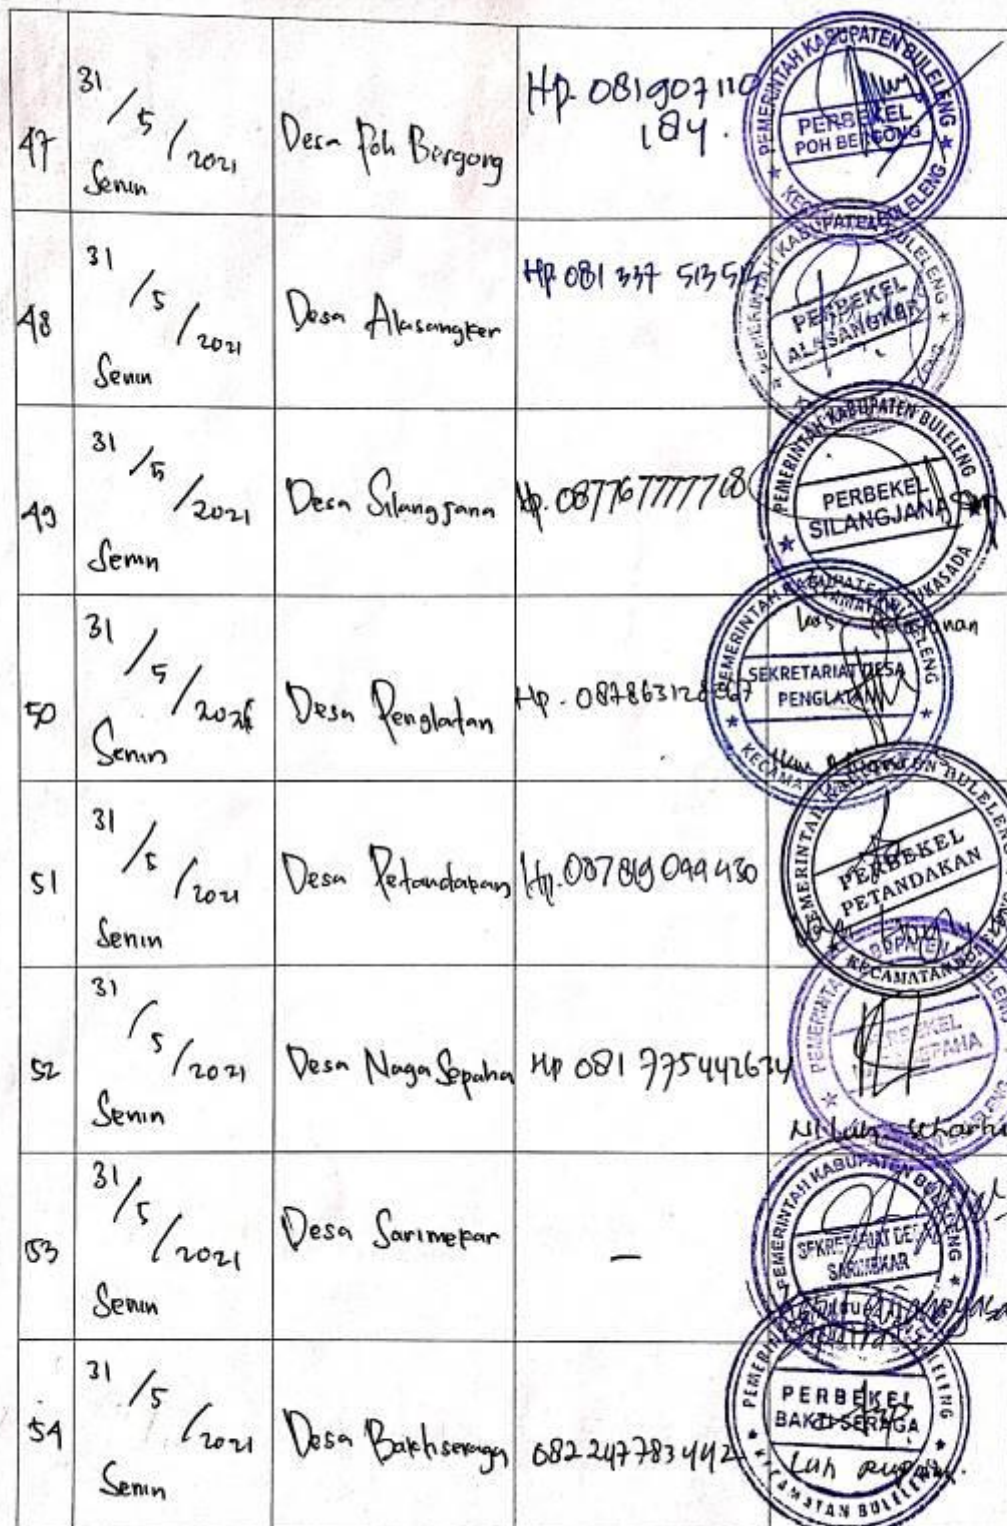 47
31/5/2021
Senin
Desa Poh Bergong
Hp. 081907110
184.
PEMERINTAH KABUPATEN BULELENG
PERBEKEL
POH BERGONG
48
31/5/2021
Senin
Desa Alasangker
Hp 081 337 513 513
KABUPATEN BULELENG
PERBEKEL
ALASANGKER
49
31/5/2021
Senin
Desa Silangjana
Hp. 087767777718
PEMERINTAH KABUPATEN BULELENG
PERBEKEL
SILANGJANA
50
31/5/2021
Senin
Desa Penglatan
Hp. 087863128
PEMERINTAH KABUPATEN BULELENG
SEKRETARIAT DESA
PENGLATAN
51
31/5/2021
Senin
Desa Petandakan
Hp. 087819099430
PEMERINTAH BULELENG
PERBEKEL
PETANDAKAN
KECAMATAN
52
31/5/2021
Senin
Desa Naga Sepaha
Hp 081 775442624
PERBEKEL
53
31/5/2021
Senin
Desa Sarimekar
–
PEMERINTAH KABUPATEN BULELENG
SEKRETARIAT DESA
SARIMEKAR
54
31/5/2021
Senin
Desa Baktiseraga
082247783442
PERBEKEL
BAKTI SERAGA
KECAMATAN BULELENG
Luh